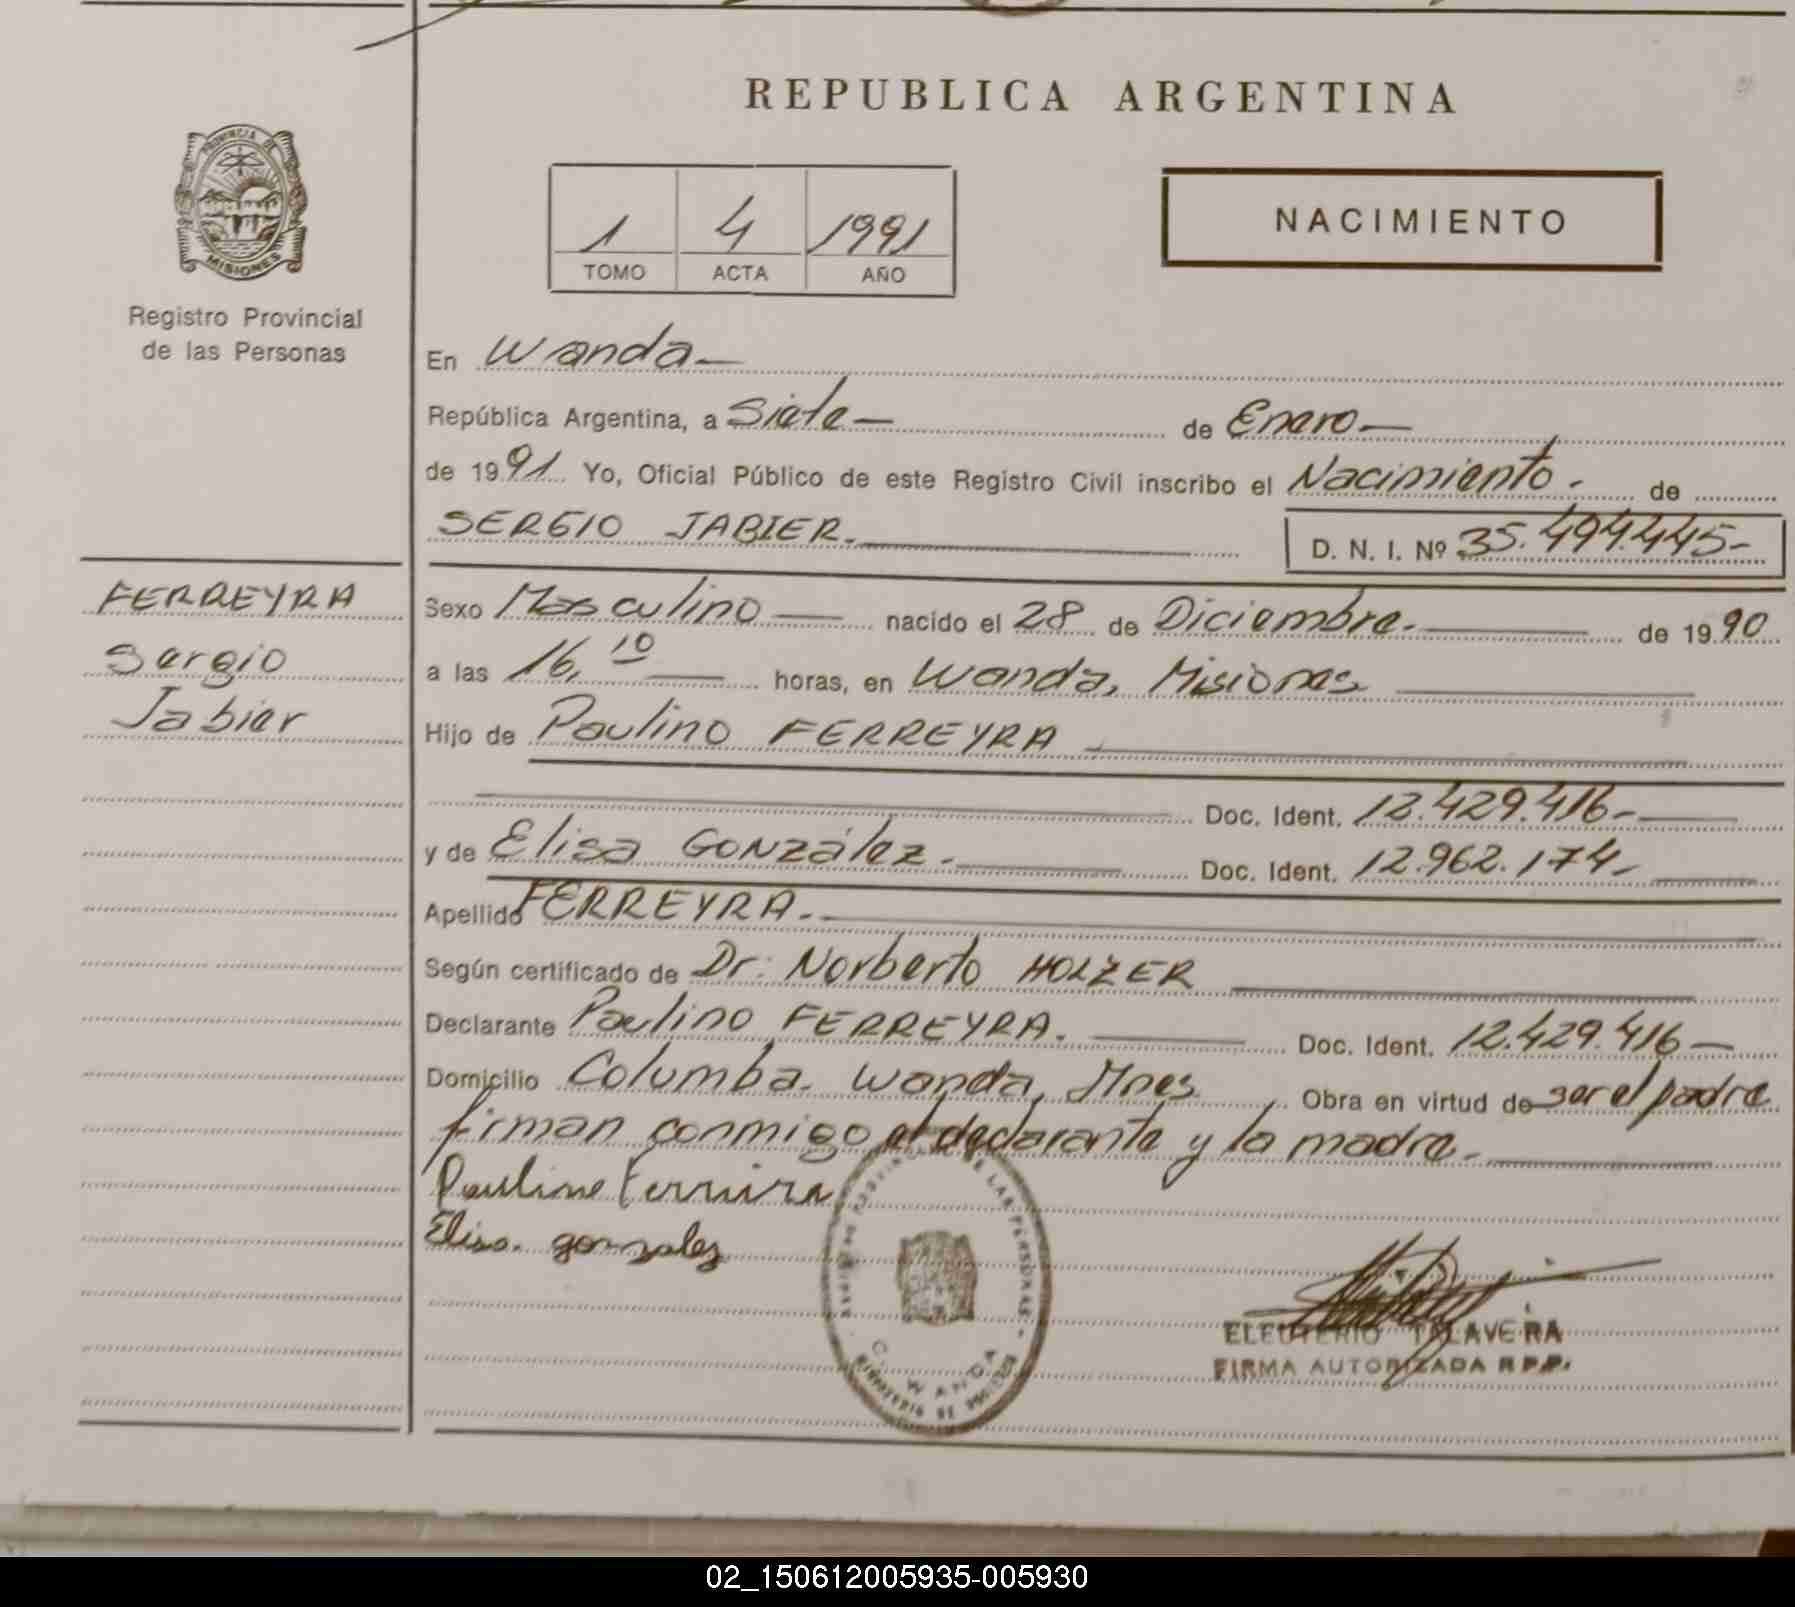 REPUBLICA ARGENTINA
PROVINCIA DE
MISIONES
Registro Provincial
de las Personas
1 4 1991
TOMO ACTA AÑO
NACIMIENTO
En Wanda
República Argentina, a Siete de Enero
de 1991 Yo, Oficial Público de este Registro Civil inscribo el Nacimiento. de
SERGIO JABIER. D. N. I. Nº 35.494.445-
FERREYRA
Sergio
Jabier
Sexo Masculino nacido el 28 de Diciembre. de 1990
a las 16,10 horas, en Wanda, Misiones
Hijo de Paulino FERREYRA
Doc. Ident. 12.429.416-
y de Elisa GONZález. Doc. Ident. 12.962.174-
Apellido FERREYRA.
Según certificado de Dr. Norberto HOLZER
Declarante Paulino FERREYRA. Doc. Ident. 12.429.416-
Domicilio Columba. Wanda, Mnes. Obra en virtud de ser el padre
firman conmigo el declarante y la madre.
Pauline Ferruira
Elisa. gonzalez
DE LAS PERSONAS
WANDA
ELEUTERIO TALAVERA
FIRMA AUTORIZADA R.P.P.
02_150612005935-005930